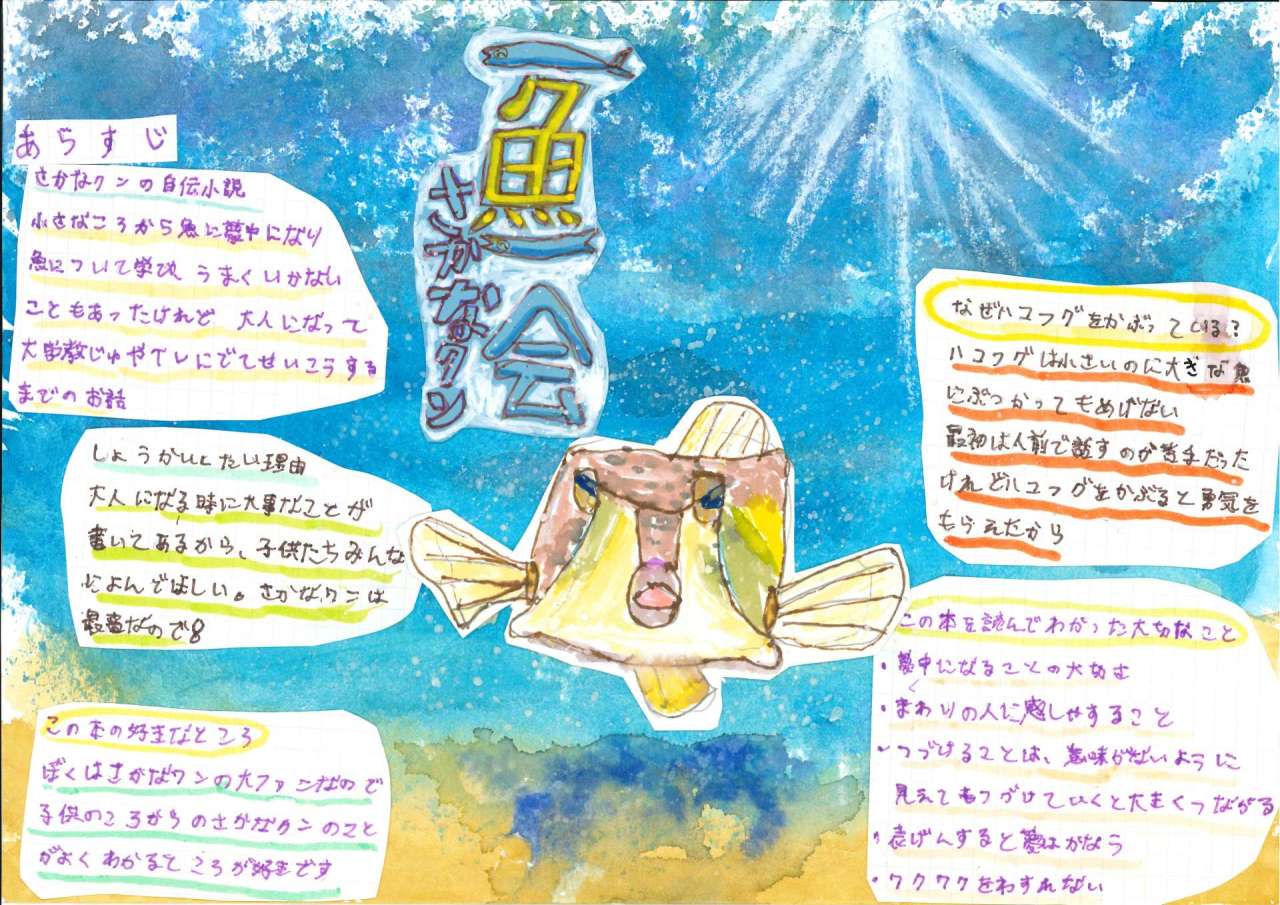 一魚一会
さかなクン
あらすじ
さかなクンの自伝小説
小さなころから魚に夢中になり
魚について学び、うまくいかない
こともあったけれど 大人になって
大学教じゅやテレビにでてせいこうする
までのお話
しょうかいしたい理由
大人になる時に大事なことが
書いてあるから、子供たちみんな
によんでほしい。さかなクンは
最高なので
この本の好きなところ
ぼくはさかなクンの大ファンなので
子供のころからのさかなクンのこと
がよくわかるところが好きです
なぜハコフグをかぶっている?
ハコフグは小さいのに大きな魚
にぶつかってもめげない
最初は人前で話すのが苦手だった
けれどハコフグをかぶると勇気を
もらえたから
この本を読んでわかった大切なこと
・夢中になることの大切さ
・まわりの人に感しゃすること
・つづけることは、意味がないように
見えてもつづけていくと大きくつながる
・表げんすると夢はかなう
・ワクワクをわすれない